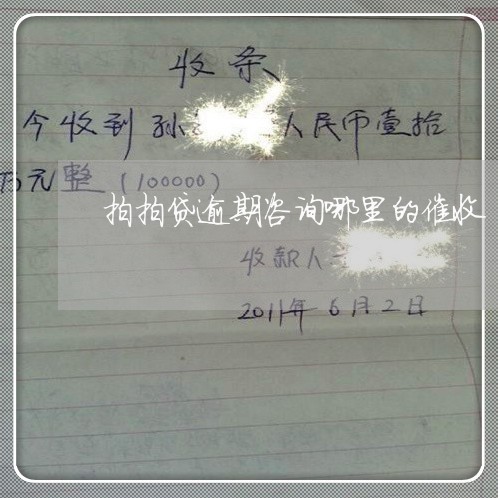 收条
今收到孙 人民币壹拾
万元整(100000)
拍拍贷逾期咨询哪里的催收
收款人
2011年6月2日